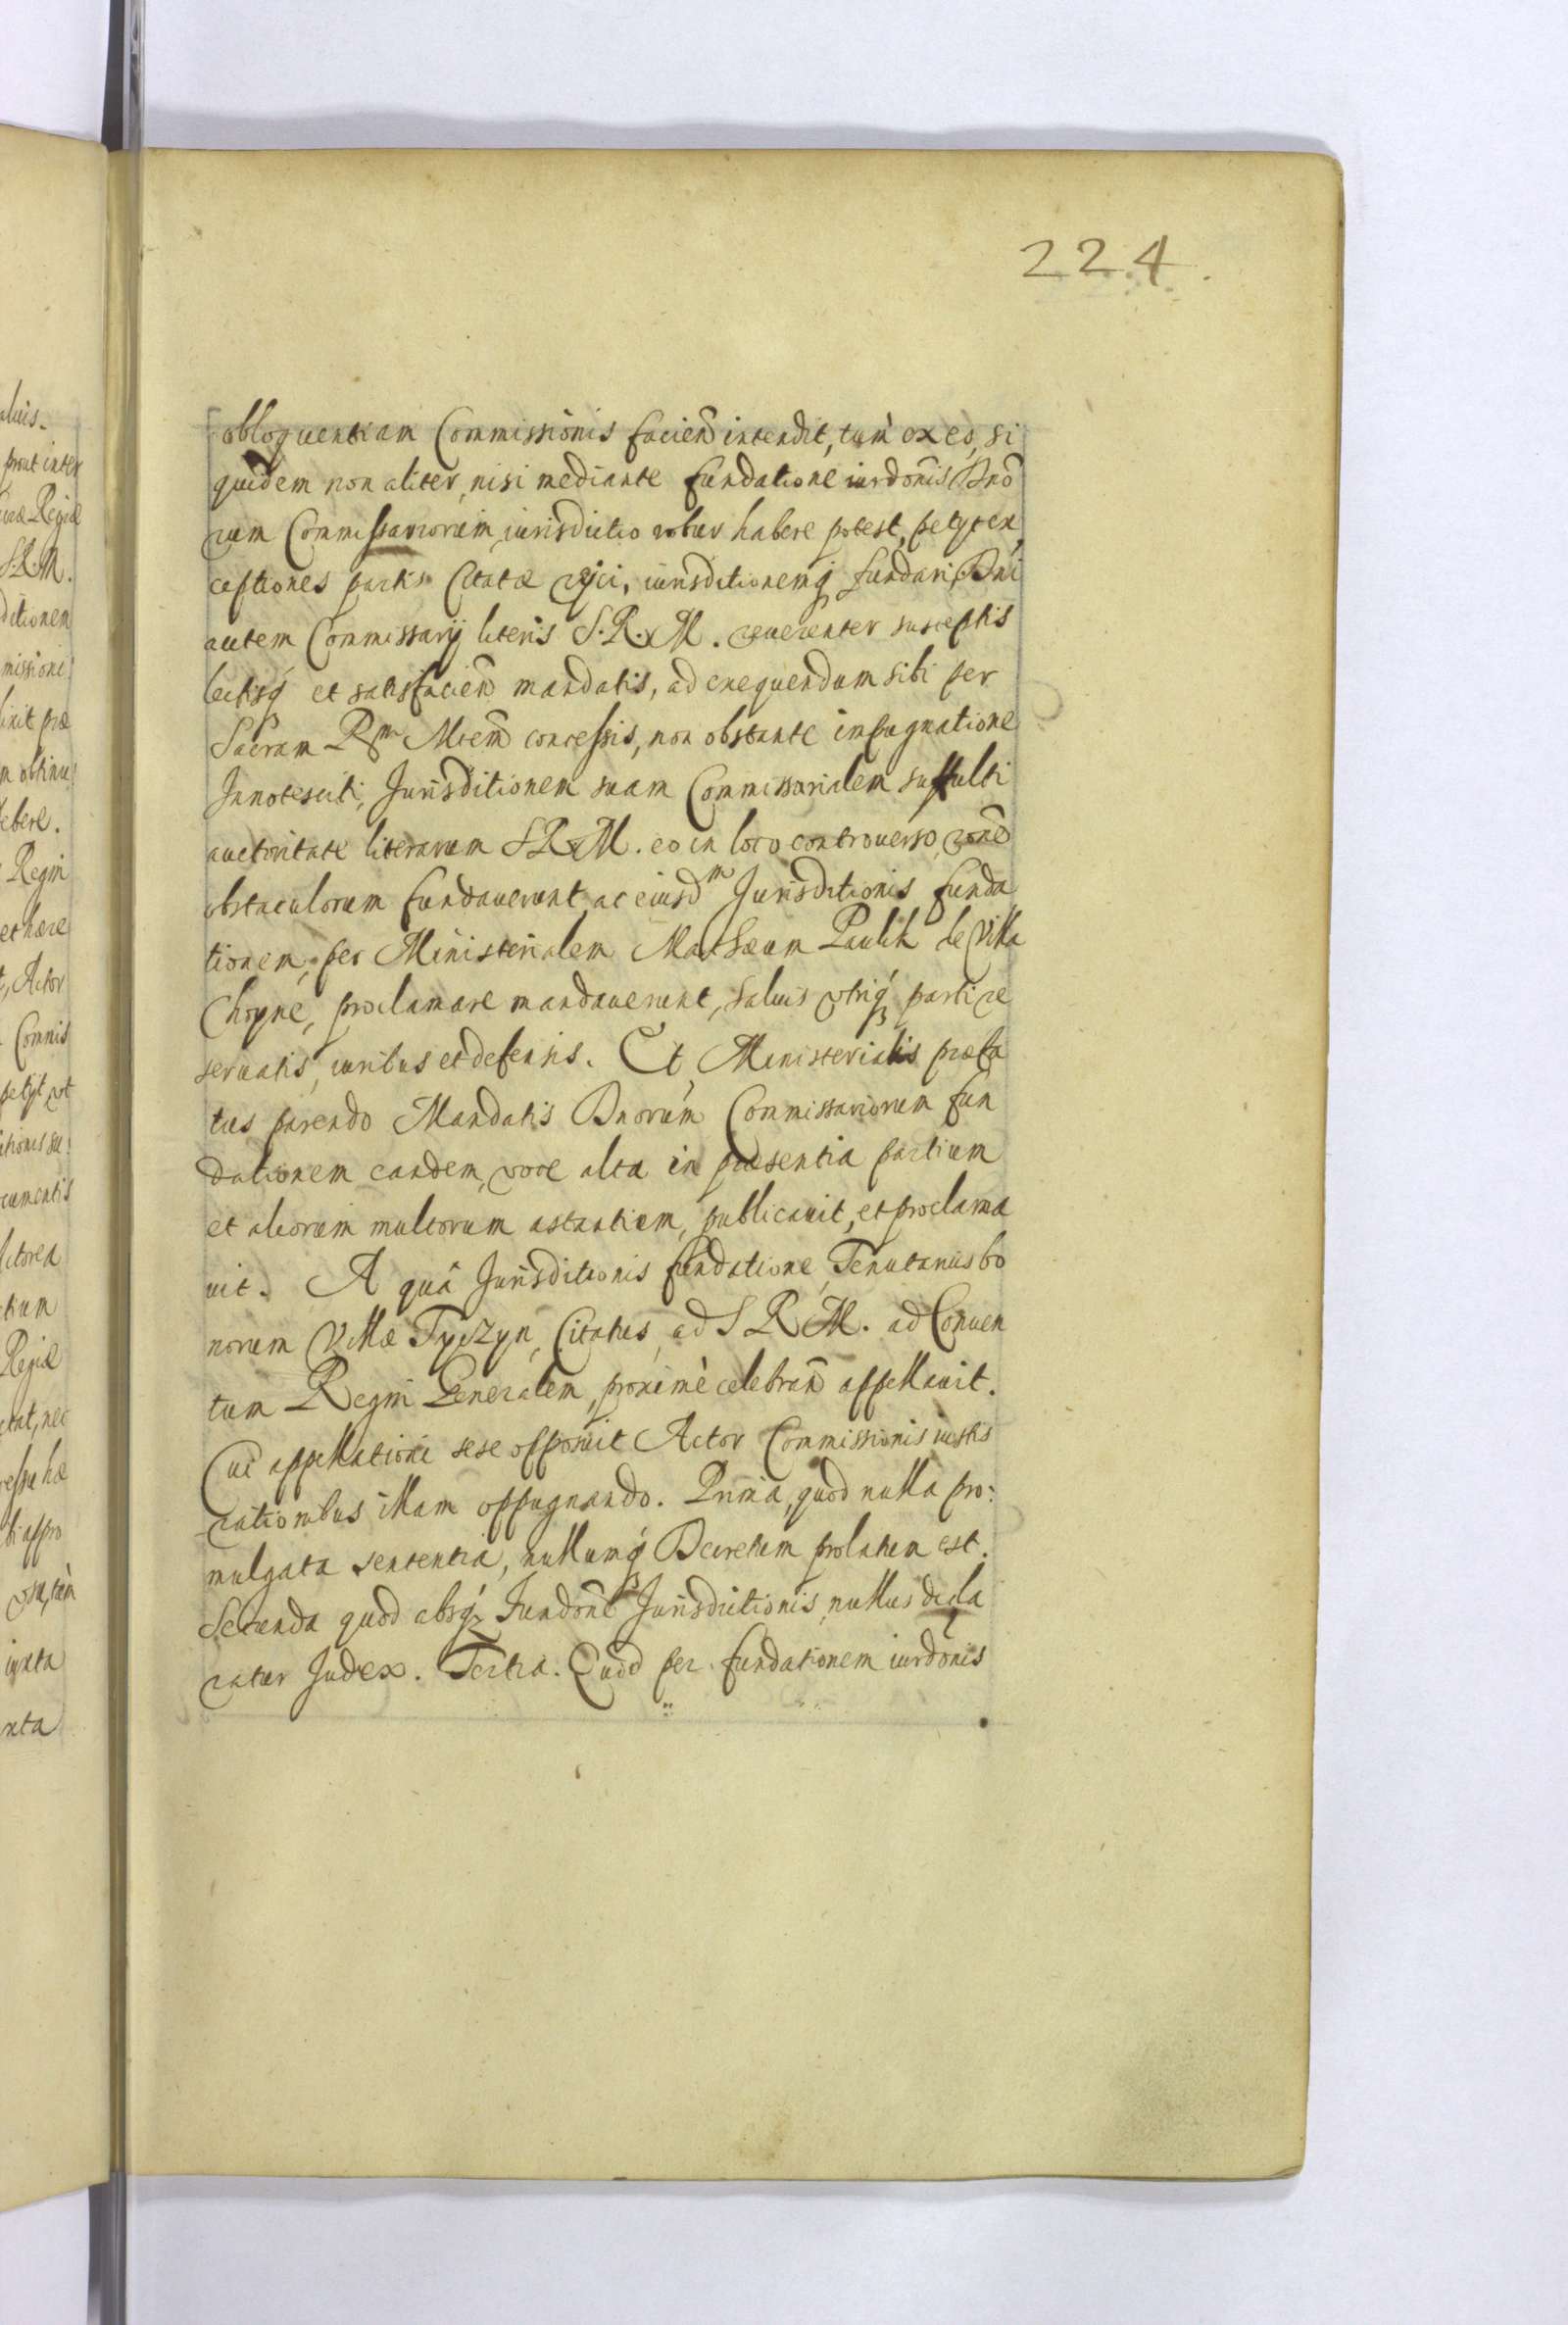 224.
obloquentiam Commissionis facien̄ intendit, tum ex eo, si
quidem non aliter, nisi mediante fundatione iurdōnis Dnō
rum Commissariorum iurisdictio robur habere potest, petijt ex,
ceptiones partis Citatæ rejici, iurisditionemq́ fundari, Dni
autem Commissarij literis S. R. M. reuerenter susceptis
lectisq́ et satisfacien̄ mandatis, ad exequendum sibi per
Sacram Rm Mtem̄ concessis, non obstante impugnatione
Innotesciti, Jurisditionem suam Commissarialem suffulti
auctoritate literarum S R M. eo in loco controuerso, rōne
obstaculorum fundauerunt, ac eiusdm Jurisditionis funda
tionem, per Ministerialem Mathæum Paulik de Villa
Choyne, proclamare mandauerunt, saluis vtriq́ parti re
seruatis, iuribus et defensis. Et Ministerialis præfa
tus parendo Mandatis Dnorum Commissariorum fun
dationem eandem, voce alta in præsentia partium
et aliorum multorum astantium, publicauit, et proclama
uit. A quâ Jurisditionis fundatione, Tenutarius bo
norum Villæ Tyczyn, Citatus, ad S R M. ad Conuen
tum Regni Generalem, proximè celebran̄ appellauit.
Cui appellationi sese opposuit Actor Commissionis iustis
rationibus illam oppugnando. Prima, quod nulla pro:
mulgata sententia, nullumq́ Decretum prolatum est.
Secunda quod absq́ Fundōne Jurisdictionis, nullus decla
ratur Judex. Tertia. Quod per fundationem iurdōnis
aluis.
prout inter
Regiæ
S. R. M.
ditionem
missioni
præ
obtinu
ebere.
Regni
et hære
, Actor
Commis
petijt, vt
itionis su
cumentis
ctorea
tium
Regiæ
nec
hæ
appro
iuxta
xta